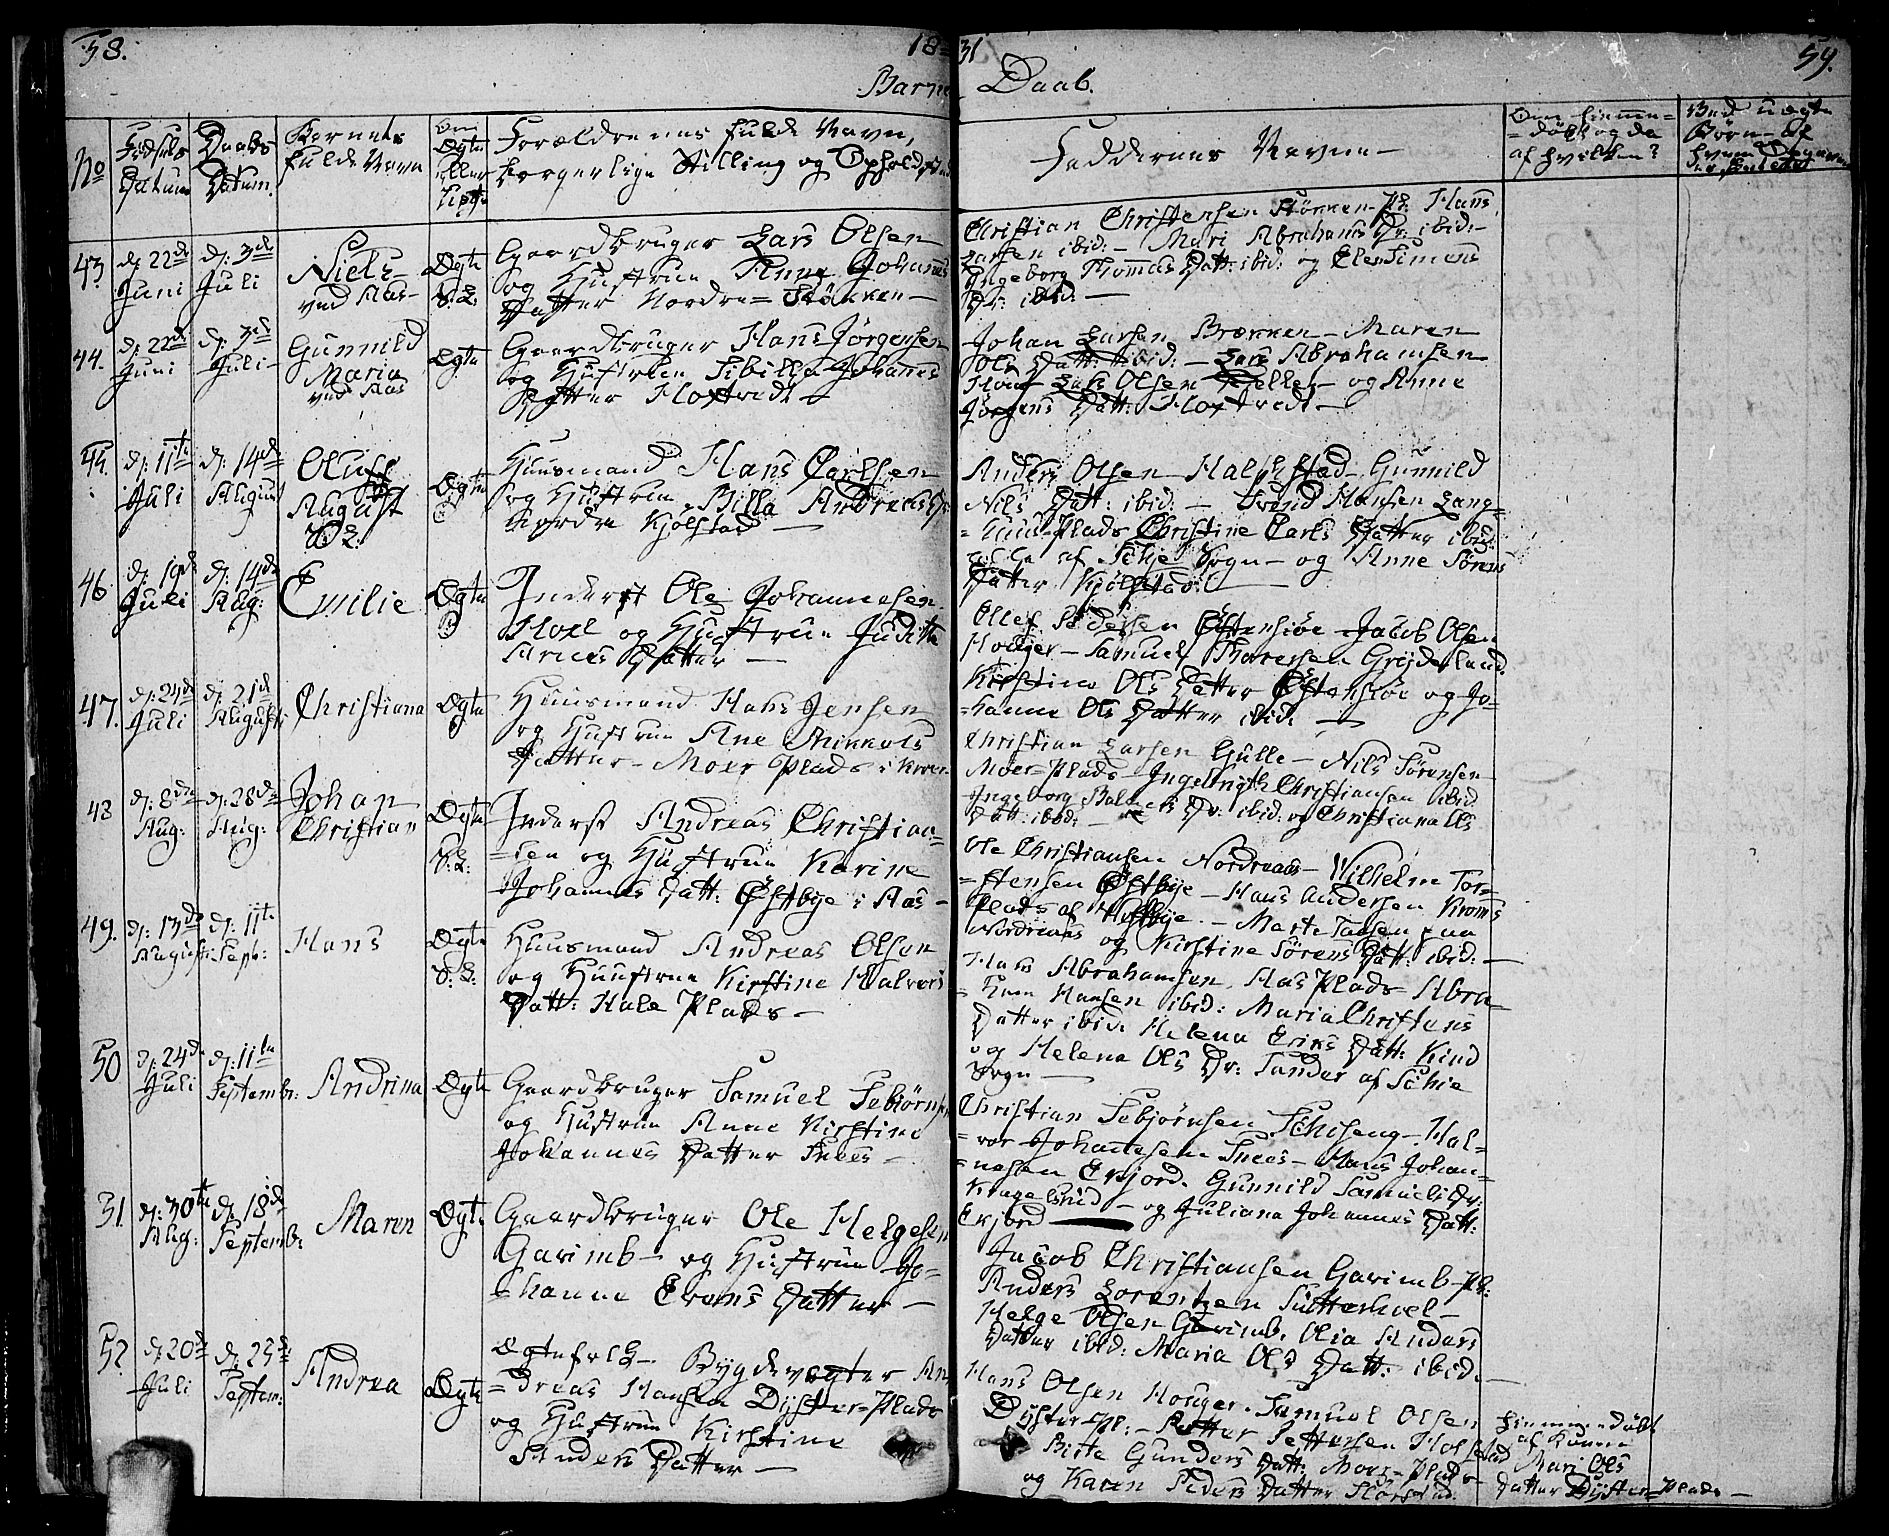 58.
1831
59.
Barne Daab.
No
Fødsels Datum
Daabs Datum.
Barnets fulde Navn
Om Ægte eller Uægte
Forældrenes fulde Navn, borgerlige Stilling og Opholdsted
Faddernes Navne
Om hiemme=
=døbt og da
af hvilken?
Ved uægte
Børn af
hvem
43.
d: 22de Juni
d: 3de Juli
Niels
ved Aas
Ægte
Gaardbruger Lars Olsen
og Hustrue Anne Johannes
Datter Nordre=Stökken
Christian Christensen Störken Pl: Hans
Larsen ibid: Mari Abrahams Dr: ibid:
Ingeborg Thommas Datt: ibid: og Elen Simens
Dr: ibid:
44.
d: 22de Juni
d: 3de Juli
Gunnild
Maria
ved Aas
Ægte
Gaardbruger Hans Jörgensen
og Hustrue Sibille Johannes
Datter Hoxtvedt
Johan Larsen Brænnen Maren
Ols Datt: ibid: Lars Abrahamsen
Lars Olsen Kelle og Anne
Jörgens Datt: Hoxtvedt
45.
d: 11te Juli
d: 14de August
Oluf
August
Ægte
Huusmand Hans Carlsen
og Hustrue Billa Andreas Dr
Nordre Kjölstad
Anders Olsen Kalstad Gunnild
Nils Datt: ibid: Svend Hansen Lang=
=huus Plads Christine Carls Datter ibid:
af Schie Sogn og Anne Sörens
Datter Kjölstad.
46
d: 19de Juli
d: 14de Aug:
Emilie
Ægte
Inderst Ole Johannesen
Hoel og Hustrue Juditte
Arnes Datter
Ole Pedersen Östensiöe Jacob Olsen
Houger Samuel Thoresen Gryderland
Kirstine Ols Datter Östensiöe og Jo=
=hanne Ols Datter ibid:
47.
d: 24de Juli
d: 21de August
Christiana
Ægte
Huusmand Hans Jensen
og Hustrue Ane Mikkels
Datter Moer Plads i Kroer
Christian Larsen Gulle Nils Sörensen
Moer Plads Ingebrigth Christiansen ibid
Ingeborg Dr: ibid: og Christiana Ols
Datt: ibid:
48
d: 8de Aug:
d: 28de Aug:
Johan
Christian
Ægte
Inderst Andreas Christian=
=sen og Hustrue Karine
Johannes Datt: Östbye i Aas
Ole Christiansen Nordreaas Wilhelm Tor=
=stensen Östbye Hans Andersen
Plads af Marte
Nordreaas og Kirstine Sörens Datt: ibid:
49.
d: 13de August
d: 11te Sept:
Hans
Ægte
Huusmand Andreas Olsen
og Huustrue Kirstine Halvors
Datt: Hale Plads
Hans Abrahamsen Aas Plads Abra=
=ham Hansen ibid: Maria Christens
Datter ibid: Helena Eriks Datt:
og Helena Ols Dr: Sander af Schie
Sogn
50
d: 24de Juli
d: 11te Septembr:
Andrina
Ægte
Gaardbruger Samuel Sebiörnsen
og Hustrue Anne Kirstine
Johannes Datter Snees
Christian Sebjörnsen Schiseng Hal=
=vor Johannesen Snees Hans Johan=
=nesen Erjord. Gunnild Samuels Dr:
og Juliana Johannes Datt:
Erjord
51.
d: 30te Aug:
d: 18de Septemb:
Maren
Ægte
Gaardbruger Ole Helgesen
Garimb og Hustrue Jo=
=hanne Evens Datter
Jacob Christiansen Garimb Pl:
Anders Lorentzen Sütterhoel
Helge Olsen Garimb. Olia Anders
Datter ibid: Maria Ols Datt: ibid.
52.
d: 20de Juli
d: 25de Septem:
Andrea
Ægte
Ægtefolk Bygdevægter An=
=dreas Hansen Dyster=Plads
og Hustrue Kirstine
Anders Datter
Hans Olsen Houger. Samuel Olsen
Dyster Pl: Petter Pettersen Holstad
Birte Gunders Datt: Moer Plads
og Karen Peders Datter
Hiemmedöbt
af Konen
Mari Ols
Datter Dyster=Plads